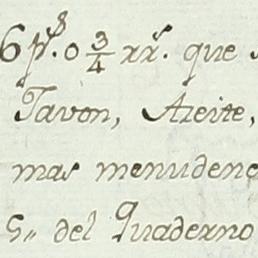 6 p.^s 0 3/4 rr.^s que
Javon, Azeite,
mas menudenc
5,, del Quaderno